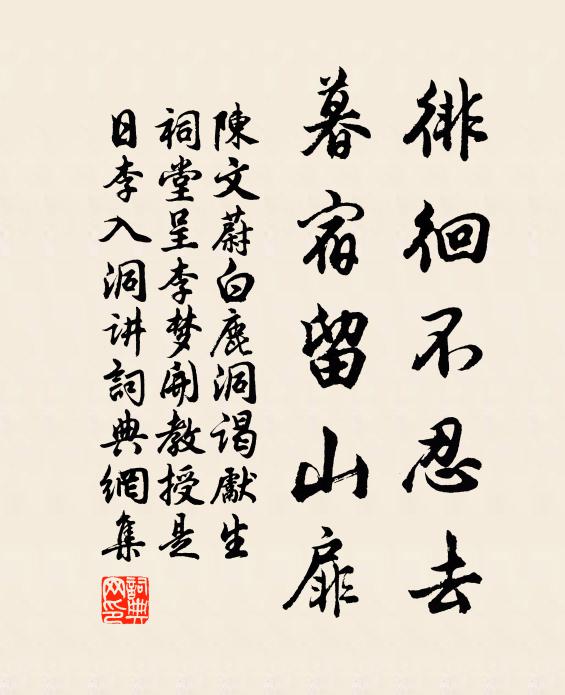 徘徊不忍去
暮宿留山扉
陳文蔚白鹿洞谒獻生
祠堂呈李梦開教授是
日李入洞讲詞典網集
詞典网印